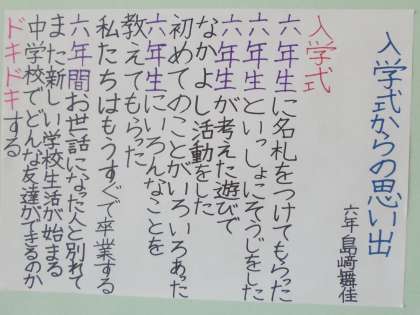 入学式からの思い出
六年 島﨑舞佳
入学式
六年生に名札をつけてもらった
六年生といっしょにそうじをした
六年生が考えた遊びで
なかよし活動をした
初めてのことがいろいろあった
六年生にいろんなことを
教えてもらった
私たちはもうすぐで卒業する
六年間お世話になった人と別れて
また新しい学校生活が始まる
中学校でどんな友達ができるのか
ドキドキする